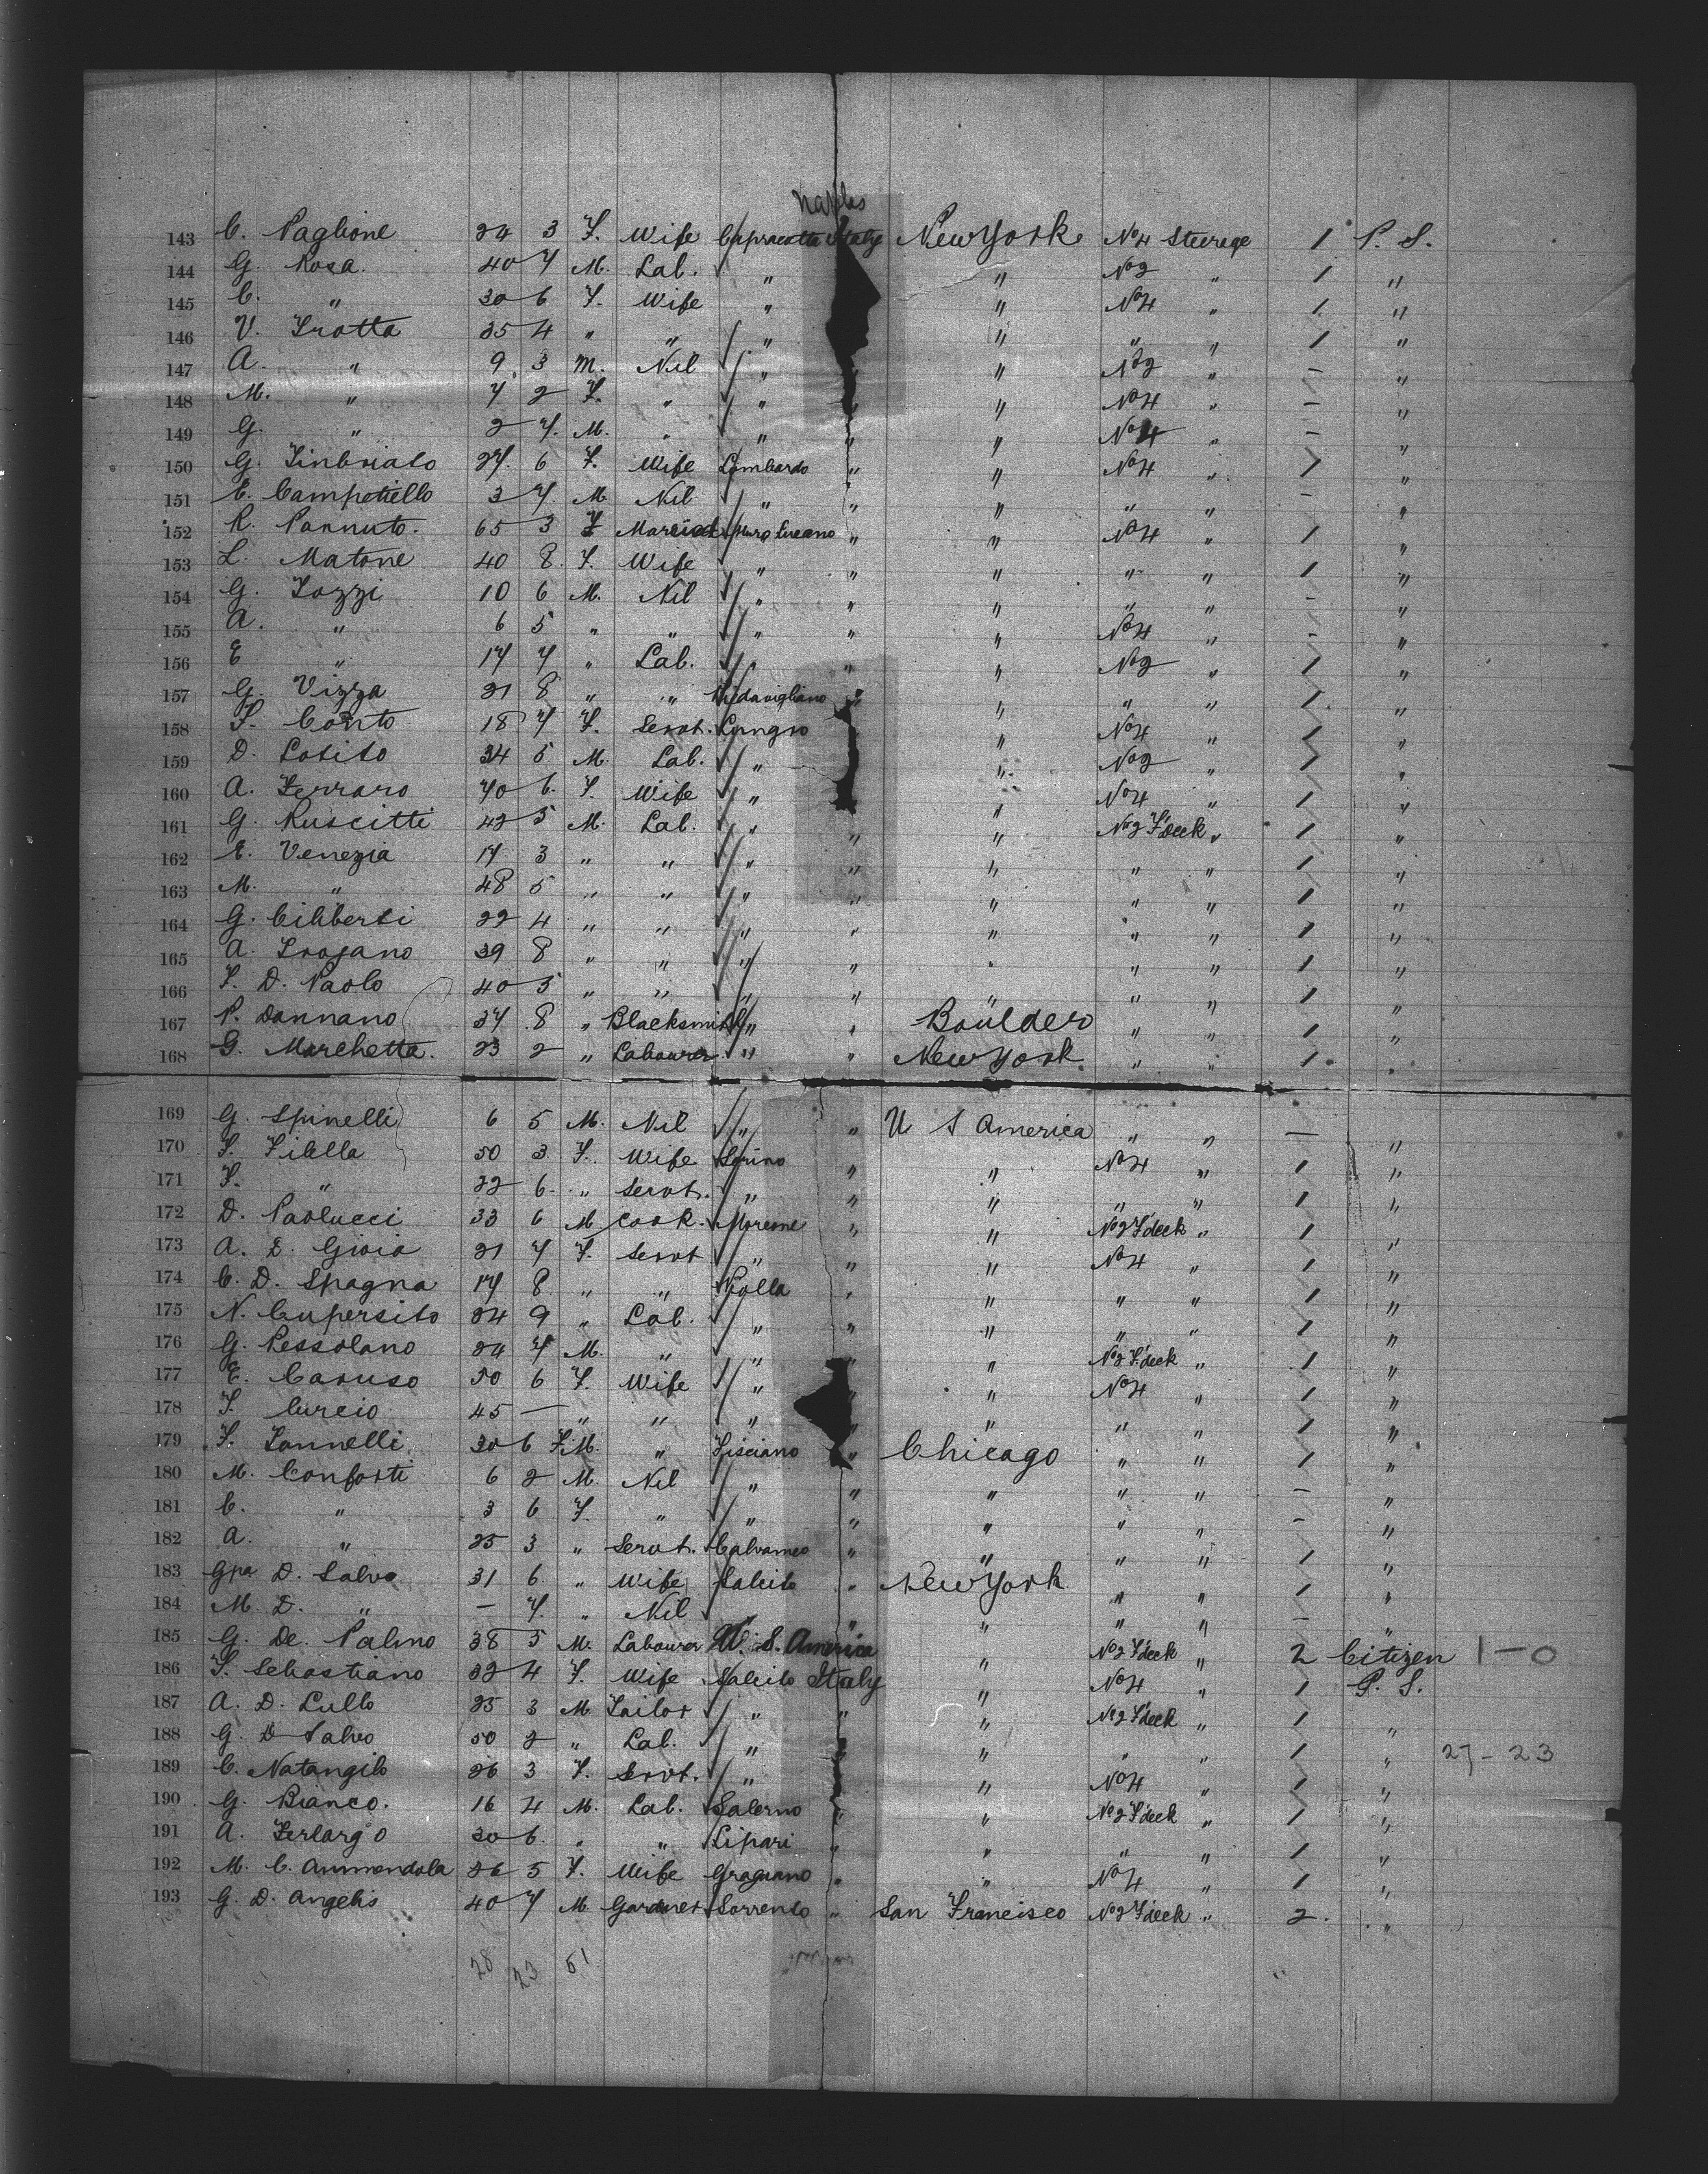 Naples
143 C. Paglione 24 3 F. Wife Capracotta Italy New York No 4 Steerage 1 P. S.
144 G. Rosa. 40 7 M. Lab. " " No 2 " 1 "
145 C. " 30 6 F. Wife " " No 4 " 1 "
146 V. Trotta 35 4 " " " " " " 1 "
147 A. " 9 3 M. Nil " " No 2 " - "
148 M. " 7 2 F. " " " " No 4 " - "
149 G. " 2 7. M. " " " " No 4 " - "
150 G. 27. 6 F. Wife Lombardo " " No 4 " 1 "
151 E. Campetiello 3 7. M. Nil " " " " " - "
152 R. Pannuto. 65 3 F Married Muro Lucano " " No 4 " 1 "
153 L. Matone 40 8. F. Wife " " " " " 1 "
154 G. Zozzi 10 6 M. Nil " " " " " - "
155 A. " 6 5 " " " " " No 4 " - "
156 E " 17 7 " Lab. " " " No 2 " 1 "
157 G. Vizza 21 8 " " " " " " 1. "
158 F. Conto 18 7 F. Servt. Lungro " No 4 " 1 "
159 D. Losito 34 5 M. Lab. " " No 2 " 1 "
160 A. Ferraro 40 6. F. Wife " " No 4 " 1 "
161 G. Ruscitti 42 5 M. Lab. " " " No 2 F'deck " 1 "
162 E. Venezia 17 3 " " " " " " " 1 "
163 M. " 48 5 " " " " " " " 1 "
164 G. Ciliberti 22 4 " " " " " " " 1 "
165 A. Trojano 39 8 " " " " " " " 1 "
166 F. D. Paolo 40 5 " " " " " " " 1 "
167 P. Dannano 37 8 " Blacksmith " " Boulder " " 1 "
168 G. Marchetta. 23 2 " Labourer " " New York " " 1. "
169 G. Spinelli 6 5 M. Nil " " U S America " " — "
170 F. Filella 50 3 F. Wife Serino " " No 4 " 1 "
171 F. " 22 6 " Servt. " " " " " 1 "
172 D. Paolucci 33 6 M Cook. Morcone " " No 2 F'deck " 1 "
173 A. D. Gioia 21 7 F. Servt " " " No 4 " 1 "
174 C. D. Spagna 17 8 " " Polla " " " " 1 "
175 N. Cupersito 24 9 " Lab. " " " " " 1 "
176 G. Pessolano 24 7 M. " " " No 2 F'deck " 1 "
177 E. Caruso 50 6 F. Wife " " " No 4 " 1 "
178 F. Curcio 45 — " " " " " " 1 "
179 F. Iannelli 30 6 F.M. " Fisciano " Chicago " " 1 "
180 M. Conforti 6 2 M. Nil " " " " " - "
181 C. " 3 6 F. " " " " " " - "
182 A. " 25 3 " Servt. " " " " 1 "
183 Gpa D. Salvo 31 6 " Wife Salcito " New York " " 1 "
184 M. D. " - 7. " Nil " " " " - "
185 G. De. Palmo 38 5 M. Labourer U. S. America " No 2 F'deck " 2 Citizen 1-0
186 F. Sebastiano 32 4 F. Wife Salcito Italy " No 4 " 1 P. S.
187 A. D. Lullo 25 3 M Tailor " " " No 2 F'deck " 1
188 G. D Salvo 50 2 " Lab. " " " " " 1 " 27-23
189 C. Natangilo 26 3 F. Servt. " " " No 4 " 1 "
190 G. Bianco. 16 4 M. Lab. Salerno " " No 2 F'deck " 1 "
191 A. 30 6. " " Lipari " " " " 1 "
192 M. C. Ammendola 26 5 F. Wife Gragnano " " No 4 " 1 "
193 G. D. Angelis 40 7 M Gardner Sorrento " San Francisco No 2 F'deck " 2. "
28 23 51